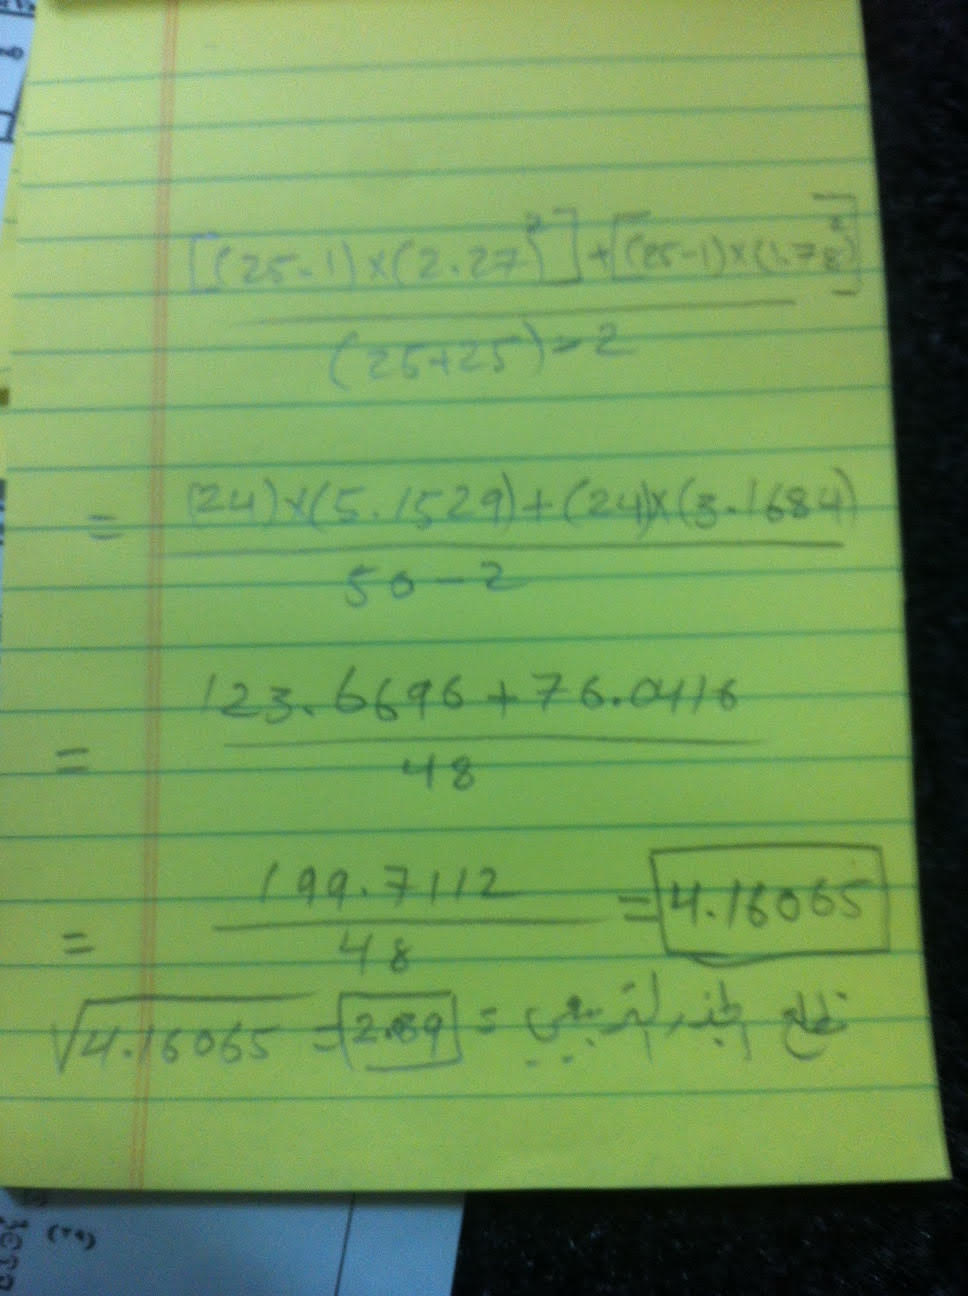 [(25-1)×(2.27)²]+[(25-1)×(1.78)²]
(25+25)-2
= (24)×(5.1529)+(24)×(3.1684)
50-2
= 123.6696+76.0416
48
= 199.7112 = 4.16065
48
√4.16065 = 2.039 = نطلع الجذر التربيعي